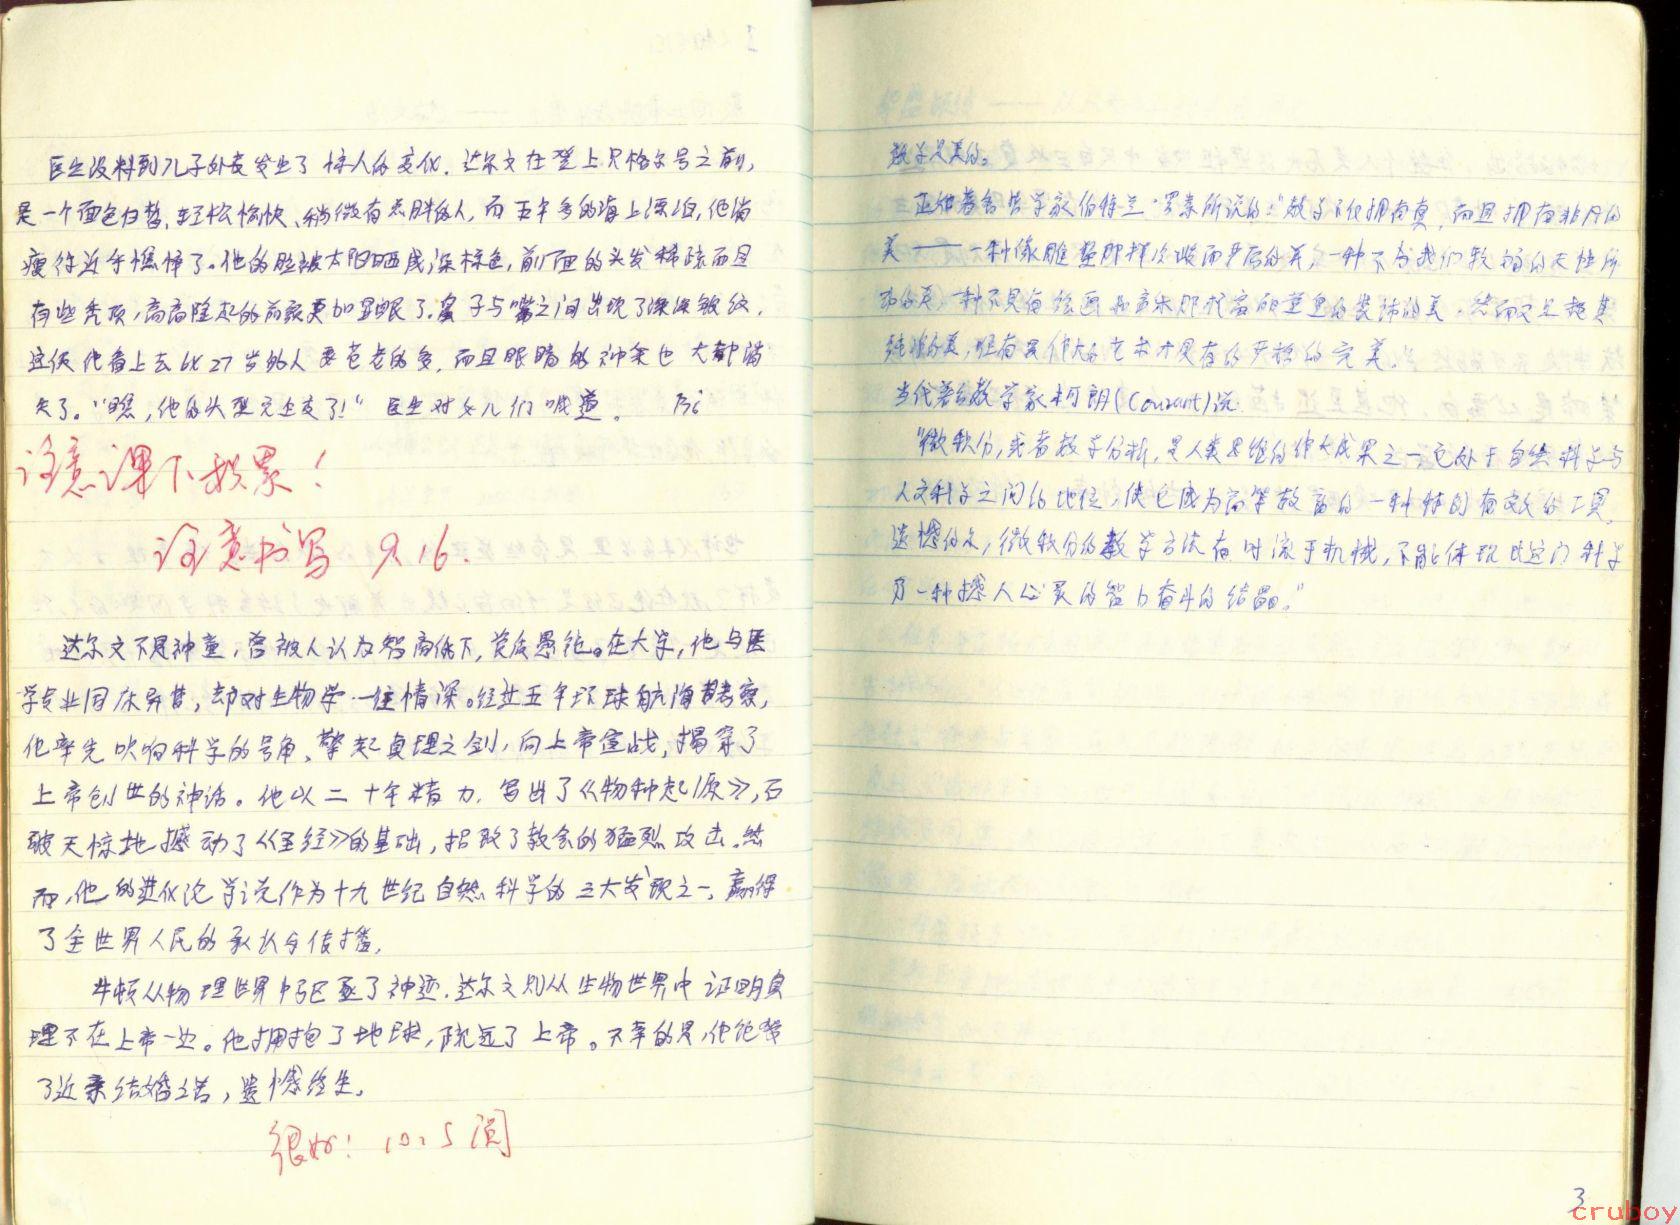 医生没料到儿子外表发生了惊人的变化。达尔文在登上贝格尔号之前,
是一个面色白皙、轻松愉快、稍微有点胖的人,而五年多的海上漂泊,他消
瘦得近乎憔悴了。他的脸被太阳晒成深棕色,前面的头发稀疏而且
有些秃顶,高高隆起的前额更加显眼了。鼻子与嘴之间出现了深深皱纹,
这使他看上去比27岁的人要苍老的多,而且眼睛的神采也大都消
失了。“瞧,他的头型完全变了!”医生对女儿们喊道。
注意课下积累!
注意书写 9.16.
达尔文不是神童,曾被人认为智商低下,资质愚钝。在大学,他与医
学专业同床异梦,却对生物学一往情深。经过五年环球航海考察,
他率先吹响科学的号角、擎起真理之剑,向上帝宣战,揭穿了
上帝创世的神话。他以二十年精力,写出了《物种起源》,石
破天惊地撼动了《圣经》的基础,招致了教会的猛烈攻击。然
而,他的进化论学说作为十九世纪自然科学的三大发现之一,赢得
了全世界人民的承认与传播。
牛顿从物理世界中驱逐了神迹,达尔文则从生物世界中证明真
理不在上帝一边。他拥抱了地球,疏远了上帝。不幸的是,他也犯
了近亲结婚之错,遗憾终生。
很好! 10.5 阅
数学是美的。
正如著名哲学家伯特兰·罗素所说的:“数学不仅拥有真,而且拥有非凡的
美——一种像雕塑那样冷峻而严厉的美,一种不为我们软弱的天性所
动的美,一种不具有绘画和音乐那样富丽堂皇的装饰的美,然而又是极其
纯净的美,唯有最伟大的艺术才具有的严格的完美。
当代著名数学家柯朗(Courant)说
“微积分,或者数学分析,是人类思维的伟大成果之一它处于自然科学与
人文科学之间的地位,使它成为高等教育的一种特别有效的工具,
遗憾的是,微积分的教学方法有时流于机械,不能体现出这门科学
乃一种撼人心灵的智力奋斗的结晶。”
3
cruboy